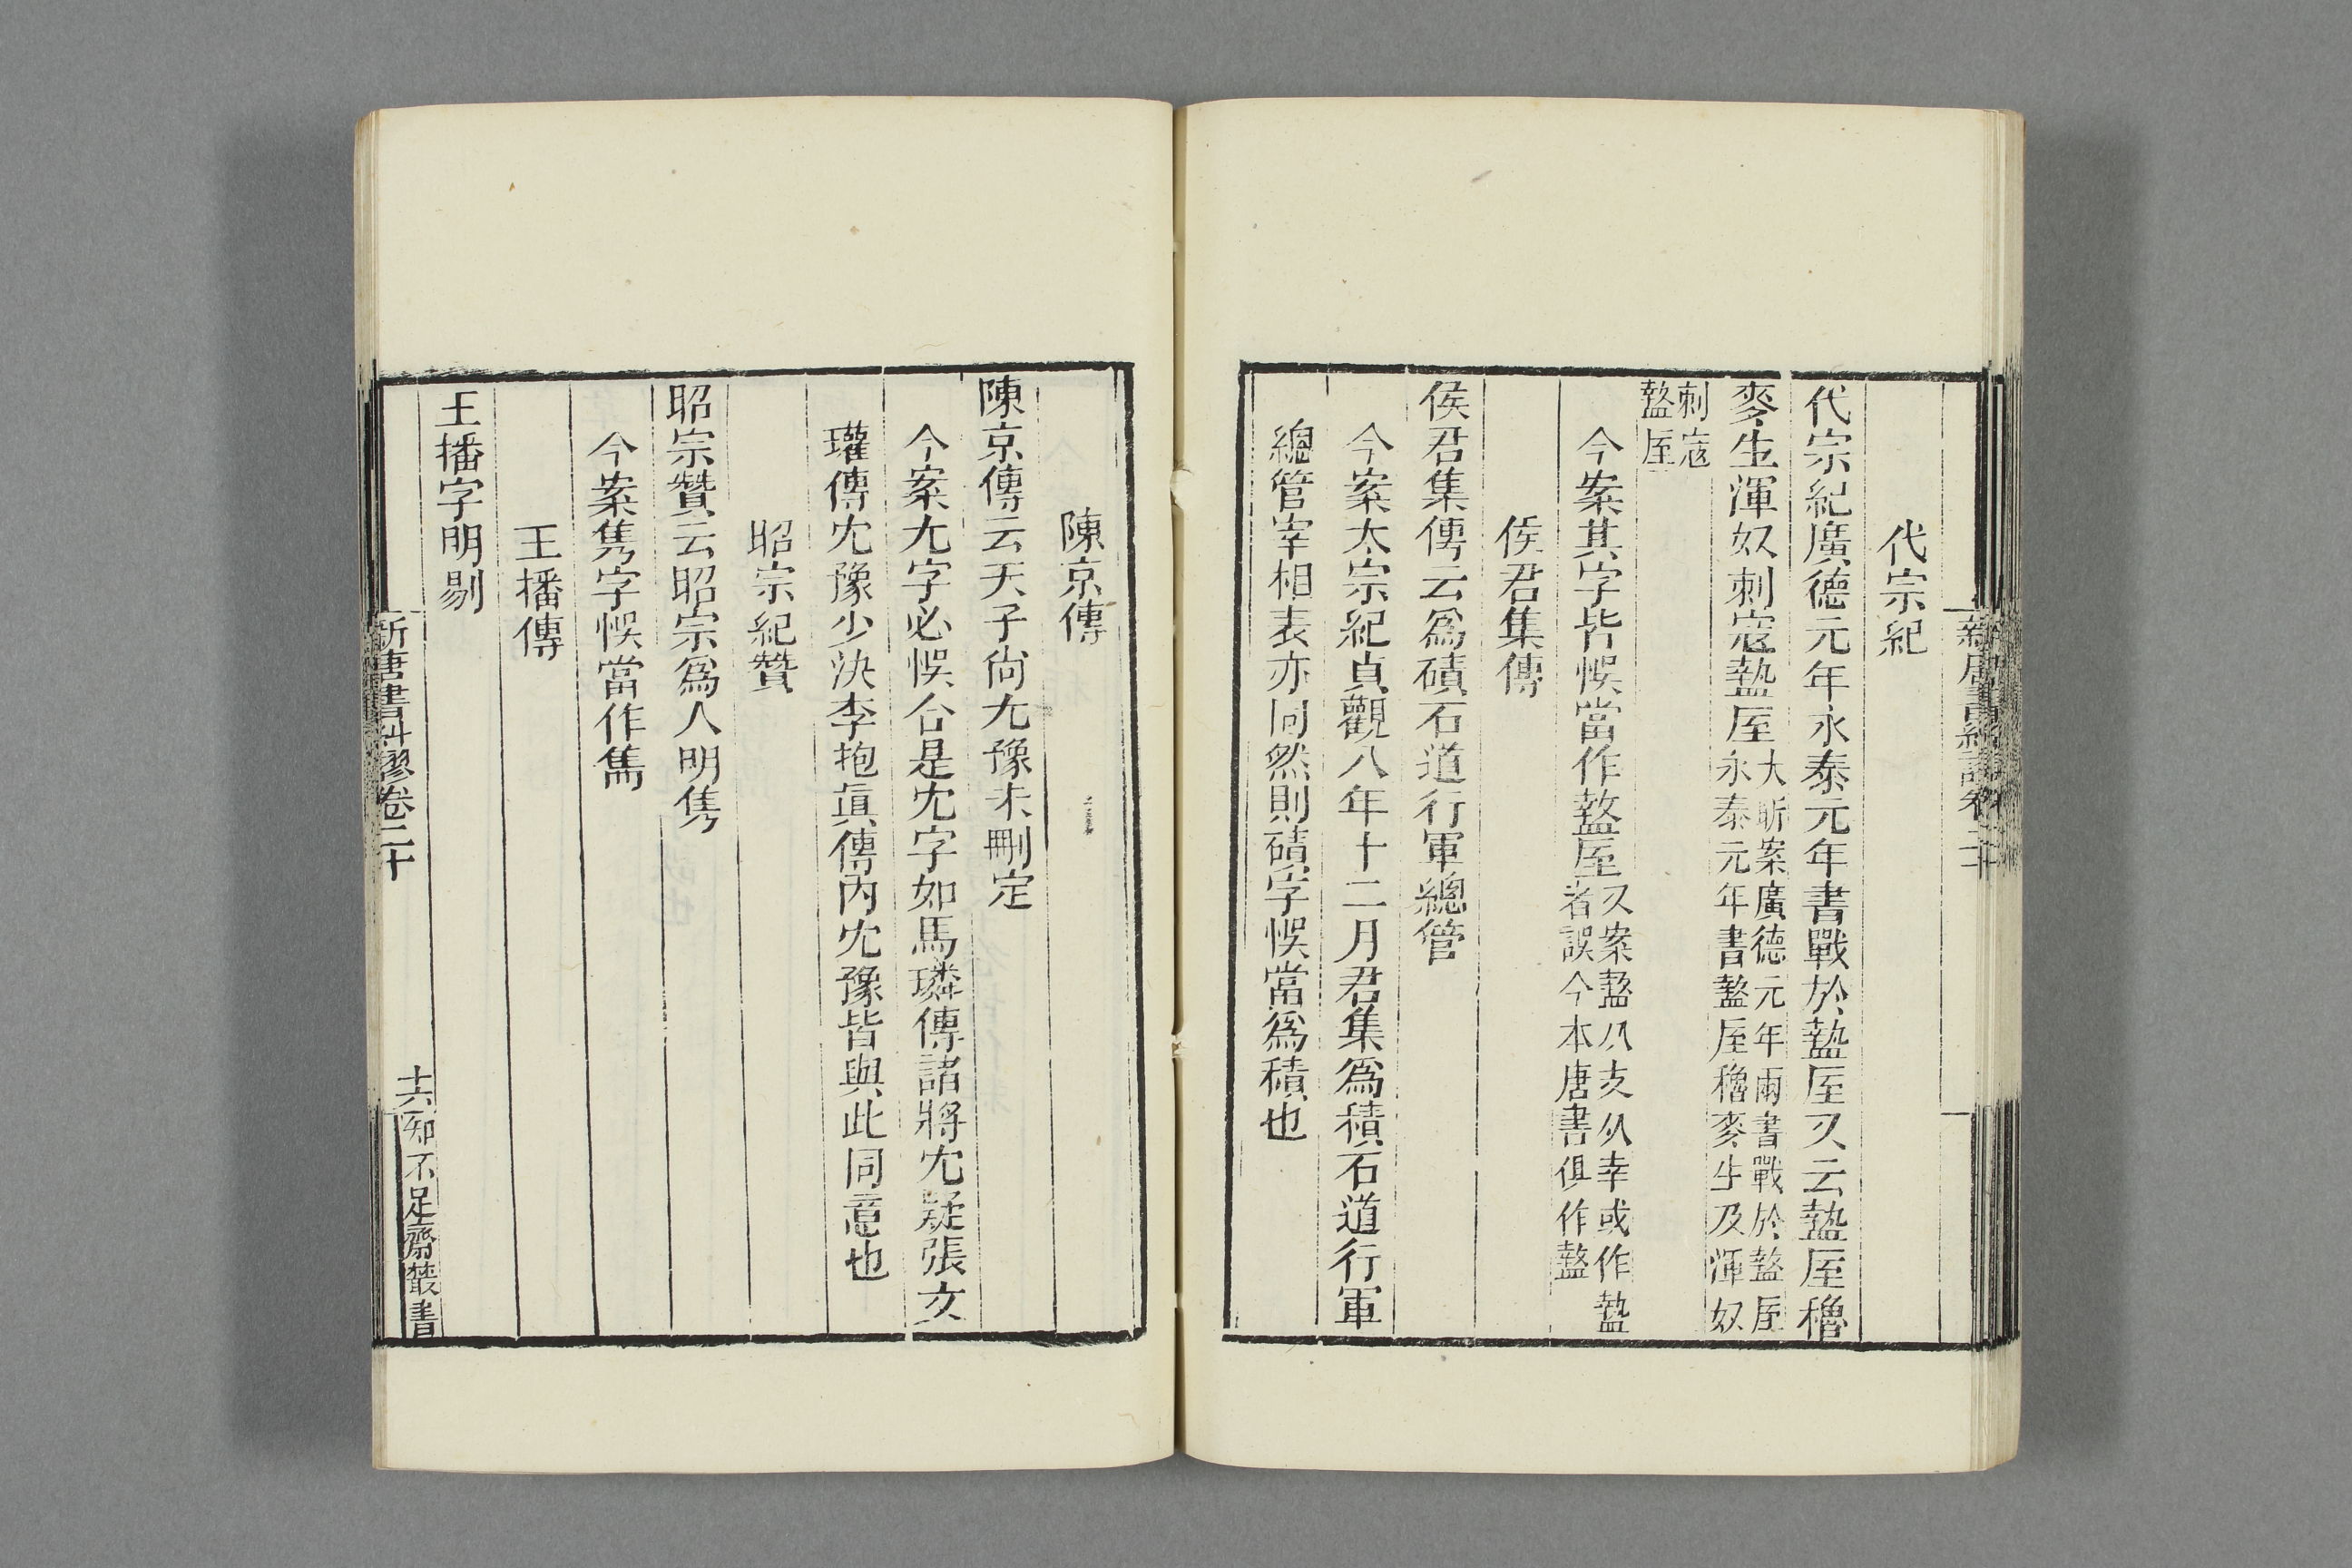 代宗紀
代宗紀廣德元年永泰元年書戰於盩厔又云盩厔穭
麥生渾奴刺寇盩厔大昕案廣德元年兩書戰於盩厔
永泰元年書盩厔穭麥生及渾奴
刺寇
盩厔
今案其字皆悞當作盩厔又案盩从攴从幸或作盩
者誤今本唐書俱作盩
侯君集傳
侯君集傳云爲磧石道行軍總管
今案太宗紀貞觀八年十二月君集爲積石道行軍
總管宰相表亦同然則磧字悞當爲積也
陳京傳
陳京傳云天子尙尤豫未刪定
今案尤字必悞合是冘字如馬璘傳諸將冘疑張文
瓘傳冘豫少決李抱眞傳內冘豫皆與此同意也
昭宗紀贊
昭宗贊云昭宗爲人明隽
今案隽字悞當作雋
王播傳
王播字明剔
新唐書糾繆卷二十
十六
知不足齋叢書